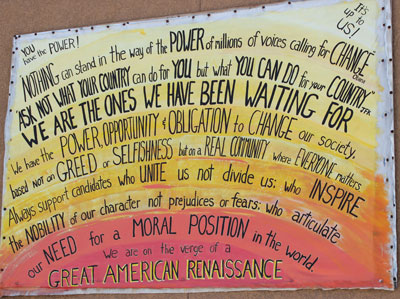 YOU have the POWER!
It's up to US!
NOTHING can stand in the way of the POWER of millions of voices calling for CHANGE" Obama
"ASK NOT WHAT YOUR COUNTRY can do for YOU but what YOU CAN DO for your COUNTRY." JFK
WE ARE THE ONES WE HAVE BEEN WAITING FOR
We have the POWER, OPPORTUNITY & OBLIGATION to CHANGE our society,
based not on GREED or SELFISHNESS but on a REAL COMMUNITY where EVERYONE matters.
Always support candidates who UNITE us not divide us; who INSPIRE
the NOBILITY of our character not prejudices or fears; who articulate
our NEED for a MORAL POSITION in the world.
We are on the verge of a
GREAT AMERICAN RENAISSANCE